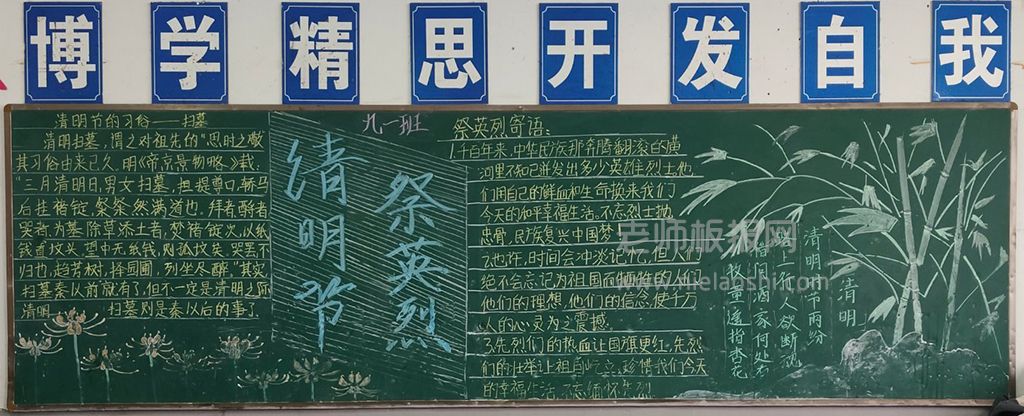 博学精思开发自我
清明节的习俗——扫墓
清明扫墓,谓之对祖先的"思时之敬
其习俗由来已久。明《帝京景物略》载:
"三月清明日,男女扫墓,担提尊口,轿马
后挂楮锭,粲粲然满道也。拜者、酹者、
哭者、为墓除草添土者,焚楮锭次,以纸
钱置坟头。望中无纸钱,则孤坟矣。哭罢,不
归也,趋芳树,择园圃,列坐尽醉。"其实,
扫墓秦以前就有了,但不一定是清明之际,
清明 扫墓则是秦以后的事了。
清明节
祭英烈
九一班
祭英烈寄语:
1.千百年来,中华民族那奔腾翻滚的黄
河里不知已并发出多少英雄烈士,他
们用自己的鲜血和生命换来我们
今天的和平幸福生活。不忘烈士
忠骨,民族复兴中国梦
2.也许,时间会冲淡记忆,但人们
绝不会忘记为祖国而牺牲的人们
他们的理想,他们的信念,使千万
人的心灵为之震撼
3.先烈们的热血让国旗更红,先烈
们的壮举让祖国屹立,珍惜我们今天
的幸福生活,不忘缅怀先烈
清明
清明时节雨纷
路上行人欲断魂
借问酒家何处有
牧童遥指杏花
老师板报网
www.hielaoshi.com